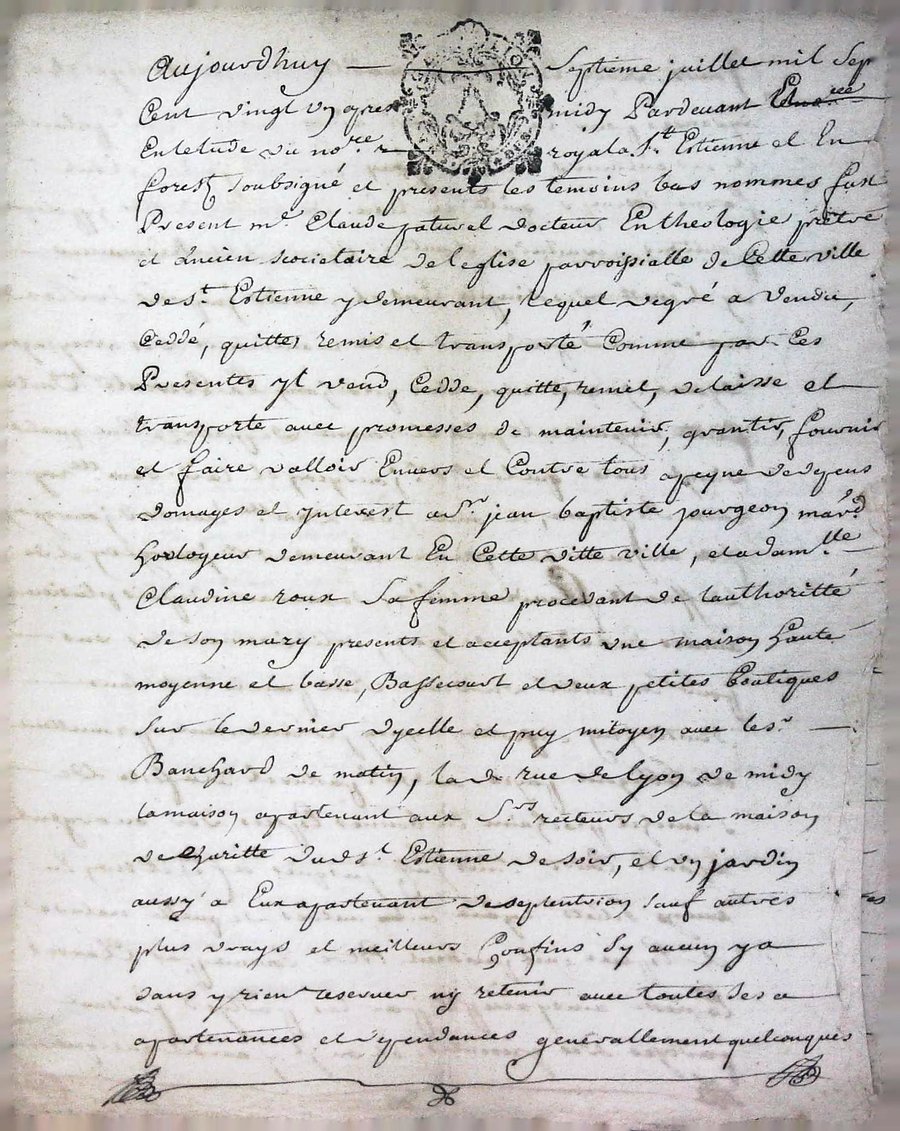 Aujourdhuy septieme juillet mil sept
Cent vingt un apres midy Pardevant
En letude du no.re royal a St. Estienne et En
forest soubsigné et presents les temoins bas nommes fust
Present me. Claude paturel docteur En theologie prêtre
et Ancien societaire de leglise parroissialle de Cette ville
de st. Estienne y demeurant, lequel de gré a vendu,
Ceddé, quitte, remis et transporté Comme par Ces
Presentes yl vend, Cedde, quitte, remet, delaisse et
transporte avec promesses de maintenir, grantir, fournir
et faire valloir Envers et Contre tous apeyne de depens
domages et ynterest a sr. jean baptiste jourgeon march.d
horlogeur demeurant En Cette ditte ville, et a dam.lle
Claudine roux sa femme procedant de lauthoritté
de son mary presents et acceptants une maison haute
moyenne et basse, Bassecourt et deux petites boutiques
sur le dernier dycelle et puy mitoyen avec le sr.
Banchard de matin, la de rue de lyon de midy
la maison apartenant aux Srs. recteurs de la maison
de Charitte du d st. Estienne de soir, et un jardin
aussy a Eux apartenant de septentrion sauf autres
plus vrays et meilleurs Confins sy aucun y a
sans y rien reserver ny retenir avec toutes ses
apartenances et dependances generallement quelconques